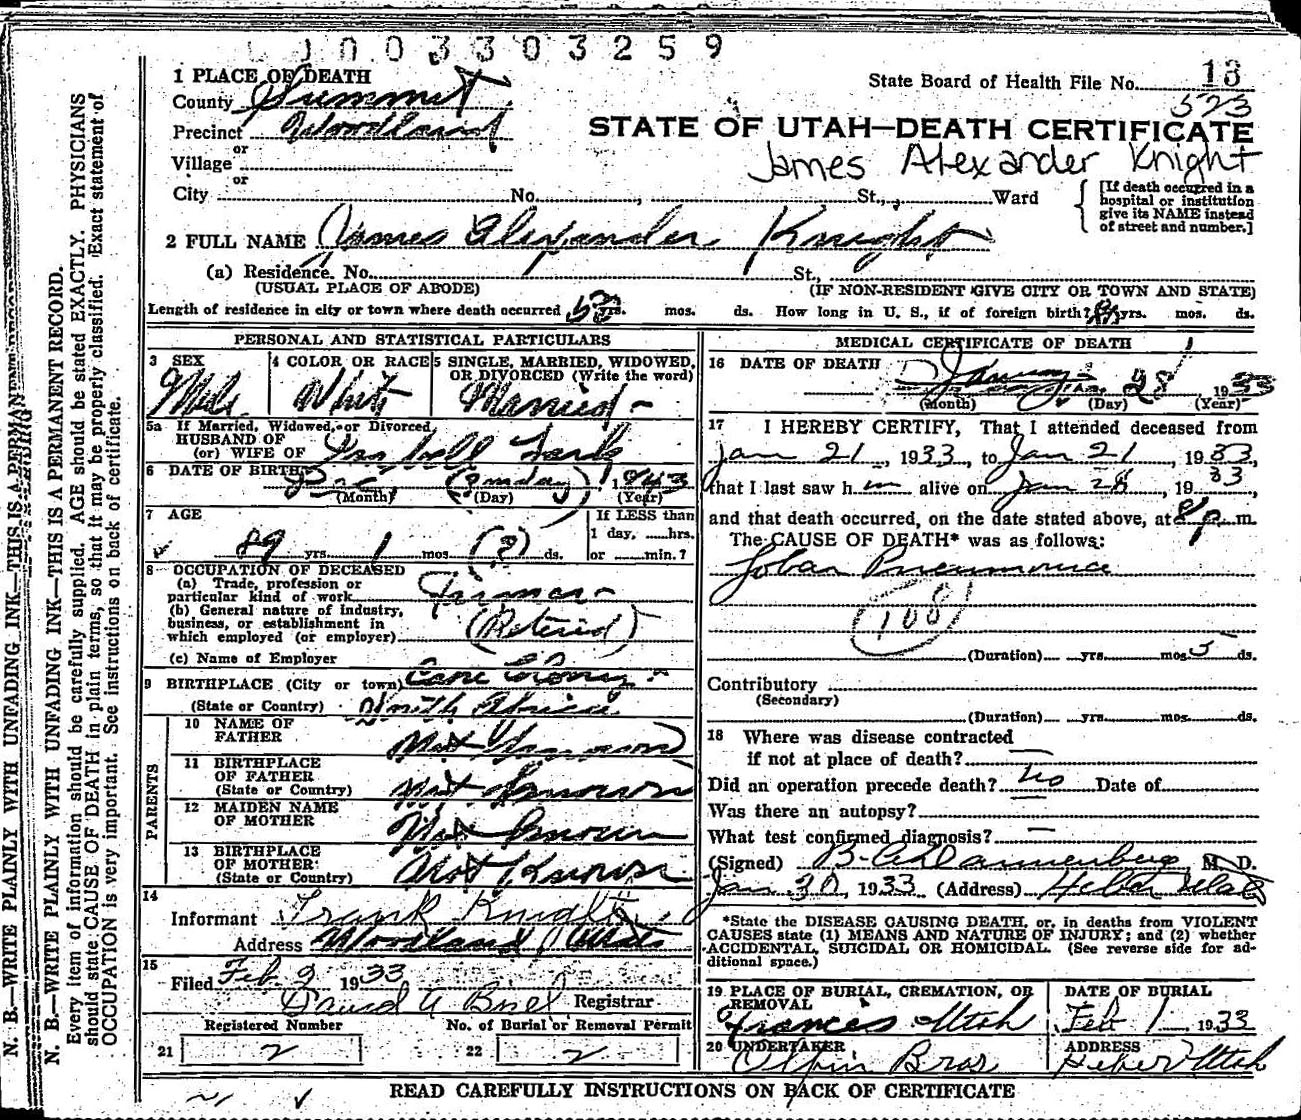 1003303259
1 PLACE OF DEATH
County Summit
State Board of Health File No. 13
523
Precinct Woodland
STATE OF UTAH—DEATH CERTIFICATE
James Alexander Knight
or
Village
or
City No. , St., Ward
[If death occurred in a
hospital or institution
give its NAME instead
of street and number.]
2 FULL NAME James Alexander Knight
(a) Residence. No. St.,
(USUAL PLACE OF ABODE) (IF NON-RESIDENT GIVE CITY OR TOWN AND STATE)
Length of residence in city or town where death occurred yrs. mos. ds. How long in U. S., if of foreign birth? yrs. mos. ds.
PERSONAL AND STATISTICAL PARTICULARS
3 SEX
Male
4 COLOR OR RACE
White
5 SINGLE, MARRIED, WIDOWED,
OR DIVORCED (Write the word)
Married
5a If Married, Widowed, or Divorced
HUSBAND OF
(or) WIFE OF
6 DATE OF BIRTH Dec 1843
(Month) (Day) (Year)
7 AGE
89 yrs 1 mos (?) ds.
If LESS than
1 day, hrs.
or min.?
8 OCCUPATION OF DECEASED
(a) Trade, profession or
particular kind of work Farmer
(b) General nature of industry,
business, or establishment in
which employed (or employer) (Retired)
(c) Name of Employer
9 BIRTHPLACE (City or town) Cape Colony
(State or Country) South Africa
PARENTS
10 NAME OF
FATHER Not Known
11 BIRTHPLACE
OF FATHER
(State or Country) Not Known
12 MAIDEN NAME
OF MOTHER Not Known
13 BIRTHPLACE
OF MOTHER
(State or Country) Not Known
14
Informant Frank Knight
Address Woodland Utah
15
Filed Feb 2 1933
David A Registrar
Registered Number
21 2
No. of Burial or Removal Permit
22 2
MEDICAL CERTIFICATE OF DEATH
16 DATE OF DEATH
January 28 1933
(Month) (Day) (Year)
17 I HEREBY CERTIFY, That I attended deceased from
Jan 21, 1933, to Jan 21, 1933,
that I last saw h m alive on Jan 28, 1933,
and that death occurred, on the date stated above, at 8 p m.
The CAUSE OF DEATH* was as follows:
Lobar Pneumonia
108
(Duration) yrs. mos 5 ds.
Contributory
(Secondary)
(Duration) yrs. mos. ds.
18 Where was disease contracted
if not at place of death?
Did an operation precede death? no Date of
Was there an autopsy?
What test confirmed diagnosis?
(Signed) B. A. Dannenberg M. D.
Jan 30, 1933 (Address) Heber Utah
*State the DISEASE CAUSING DEATH, or, in deaths from VIOLENT
CAUSES state (1) MEANS AND NATURE OF INJURY; and (2) whether
ACCIDENTAL, SUICIDAL OR HOMICIDAL. (See reverse side for ad-
ditional space.)
19 PLACE OF BURIAL, CREMATION, OR
REMOVAL
Francis Utah
DATE OF BURIAL
Feb 1 1933
20 UNDERTAKER
Olpin Bros
ADDRESS
Heber Utah
READ CAREFULLY INSTRUCTIONS ON BACK OF CERTIFICATE
N. B.—WRITE PLAINLY WITH UNFADING INK—THIS IS A PERMANENT RECORD
N. B.—WRITE PLAINLY WITH UNFADING INK—THIS IS A PERMANENT RECORD.
Every item of information should be carefully supplied. AGE should be stated EXACTLY. PHYSICIANS
should state CAUSE OF DEATH in plain terms, so that it may be properly classified. Exact statement of
OCCUPATION is very important. See instructions on back of certificate.